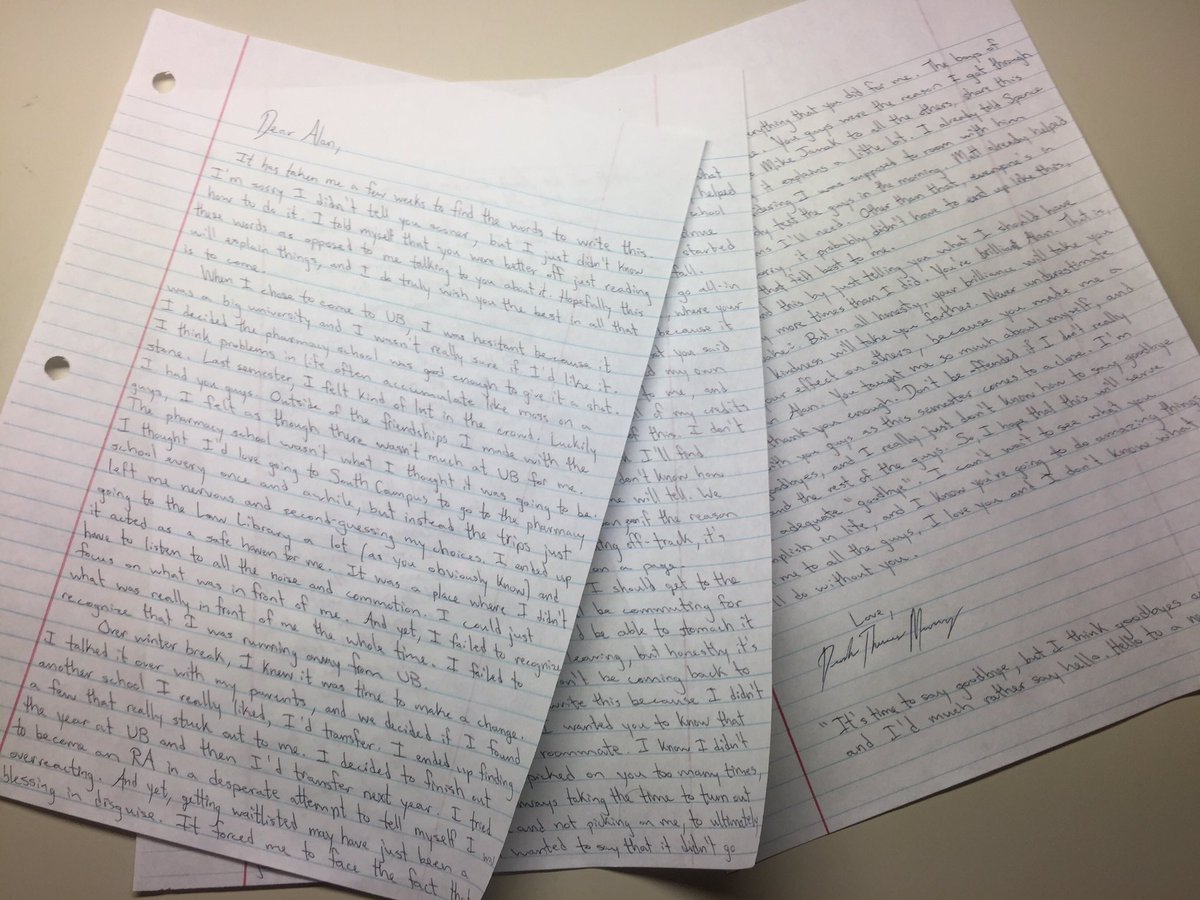 Dear Alan,
It has taken me a few weeks to find the words to write this.
I'm sorry I didn't tell you sooner, but I just didn't know
how to do it. I told myself that you were better off just reading
these words as opposed to me talking to you about it. Hopefully this
will explain things, and I do truly wish you the best in all that
is to come.
When I chose to come to UB, I was hesitant because it
was a big university and I wasn't really sure if I'd like it.
I decided the pharmacy school was good enough to give it a shot.
I think problems in life often accumulate like moss on a
stone. Last semester, I felt kind of lost in the crowd. Luckily
I had you guys. Outside of the friendships I made with the
guys, I felt as though there wasn't much at UB for me.
The pharmacy school wasn't what I thought it was going to be.
I thought I'd love going to South Campus to go to the pharmacy
school every once and awhile, but instead the trips just
left me nervous and second-guessing my choices. I ended up
going to the Law Library a lot (as you obviously know) and
it acted as a safe haven for me. It was a place where I didn't
have to listen to all the noise and commotion. I could just
focus on what was in front of me. And yet, I failed to recognize
what was really in front of me the whole time. I failed to
recognize that I was running away from UB.
Over winter break, I knew it was time to make a change.
I talked it over with my parents, and we decided if I found
another school I really liked, I'd transfer. I ended up finding
a few that really stuck out to me. I decided to finish out
the year at UB and then I'd transfer next year. I tried
to become an RA in a desperate attempt to tell myself I was
overreacting. And yet, getting waitlisted may have just been a
blessing in disguise. It forced me to face the fact that
what
helped
school
started
fall.
go all-in
where your
because it
you said
my own
to me, and
of my credits
of this. I don't
I'll find
don't know how
time will tell. We
if the reason
ing off-track, it's
on a page.
I should get to the
be commuting for
be able to stomach it
leaving, but honestly it's
can't be coming back to
write this because I didn't
I wanted you to know that
roommate. I know I didn't
picked on you too many times,
always taking the time to turn out
and not picking on me, to ultimately
wanted to say that it didn't go
everything that you did for me. The boys of
You guys were the reason I got through
Mike Janak to all the others, share this
it explains a little bit. I already told Spence
I was supposed to room with him
text the guys in the morning. Matt already helped
I'll need. Other than that, everyone's in
sorry, it probably didn't have to end up like this,
that felt best to me.
this by just telling you what I should have
more times than I did. You're brilliant Alan. That is,
But in all honesty, your brilliance will take you
kindness will take you farther. Never underestimate
your effect on others, because you made me a
Alan. You taught me so much about myself, and
thank you enough. Don't be offended if I don't really
with you guys as this semester comes to a close. I'm
goodbyes, and I really just don't know how to say goodbye
and the rest of the guys. So, I hope that this will serve
adequate "goodbye". I can't wait to see what you
accomplish in life, and I know you're going to do amazing things
me to all the guys, I love you and I don't know what
I'll do without you.
Love,
"It's time to say goodbye, but I think goodbyes are
and I'd much rather say hello. Hello to a new